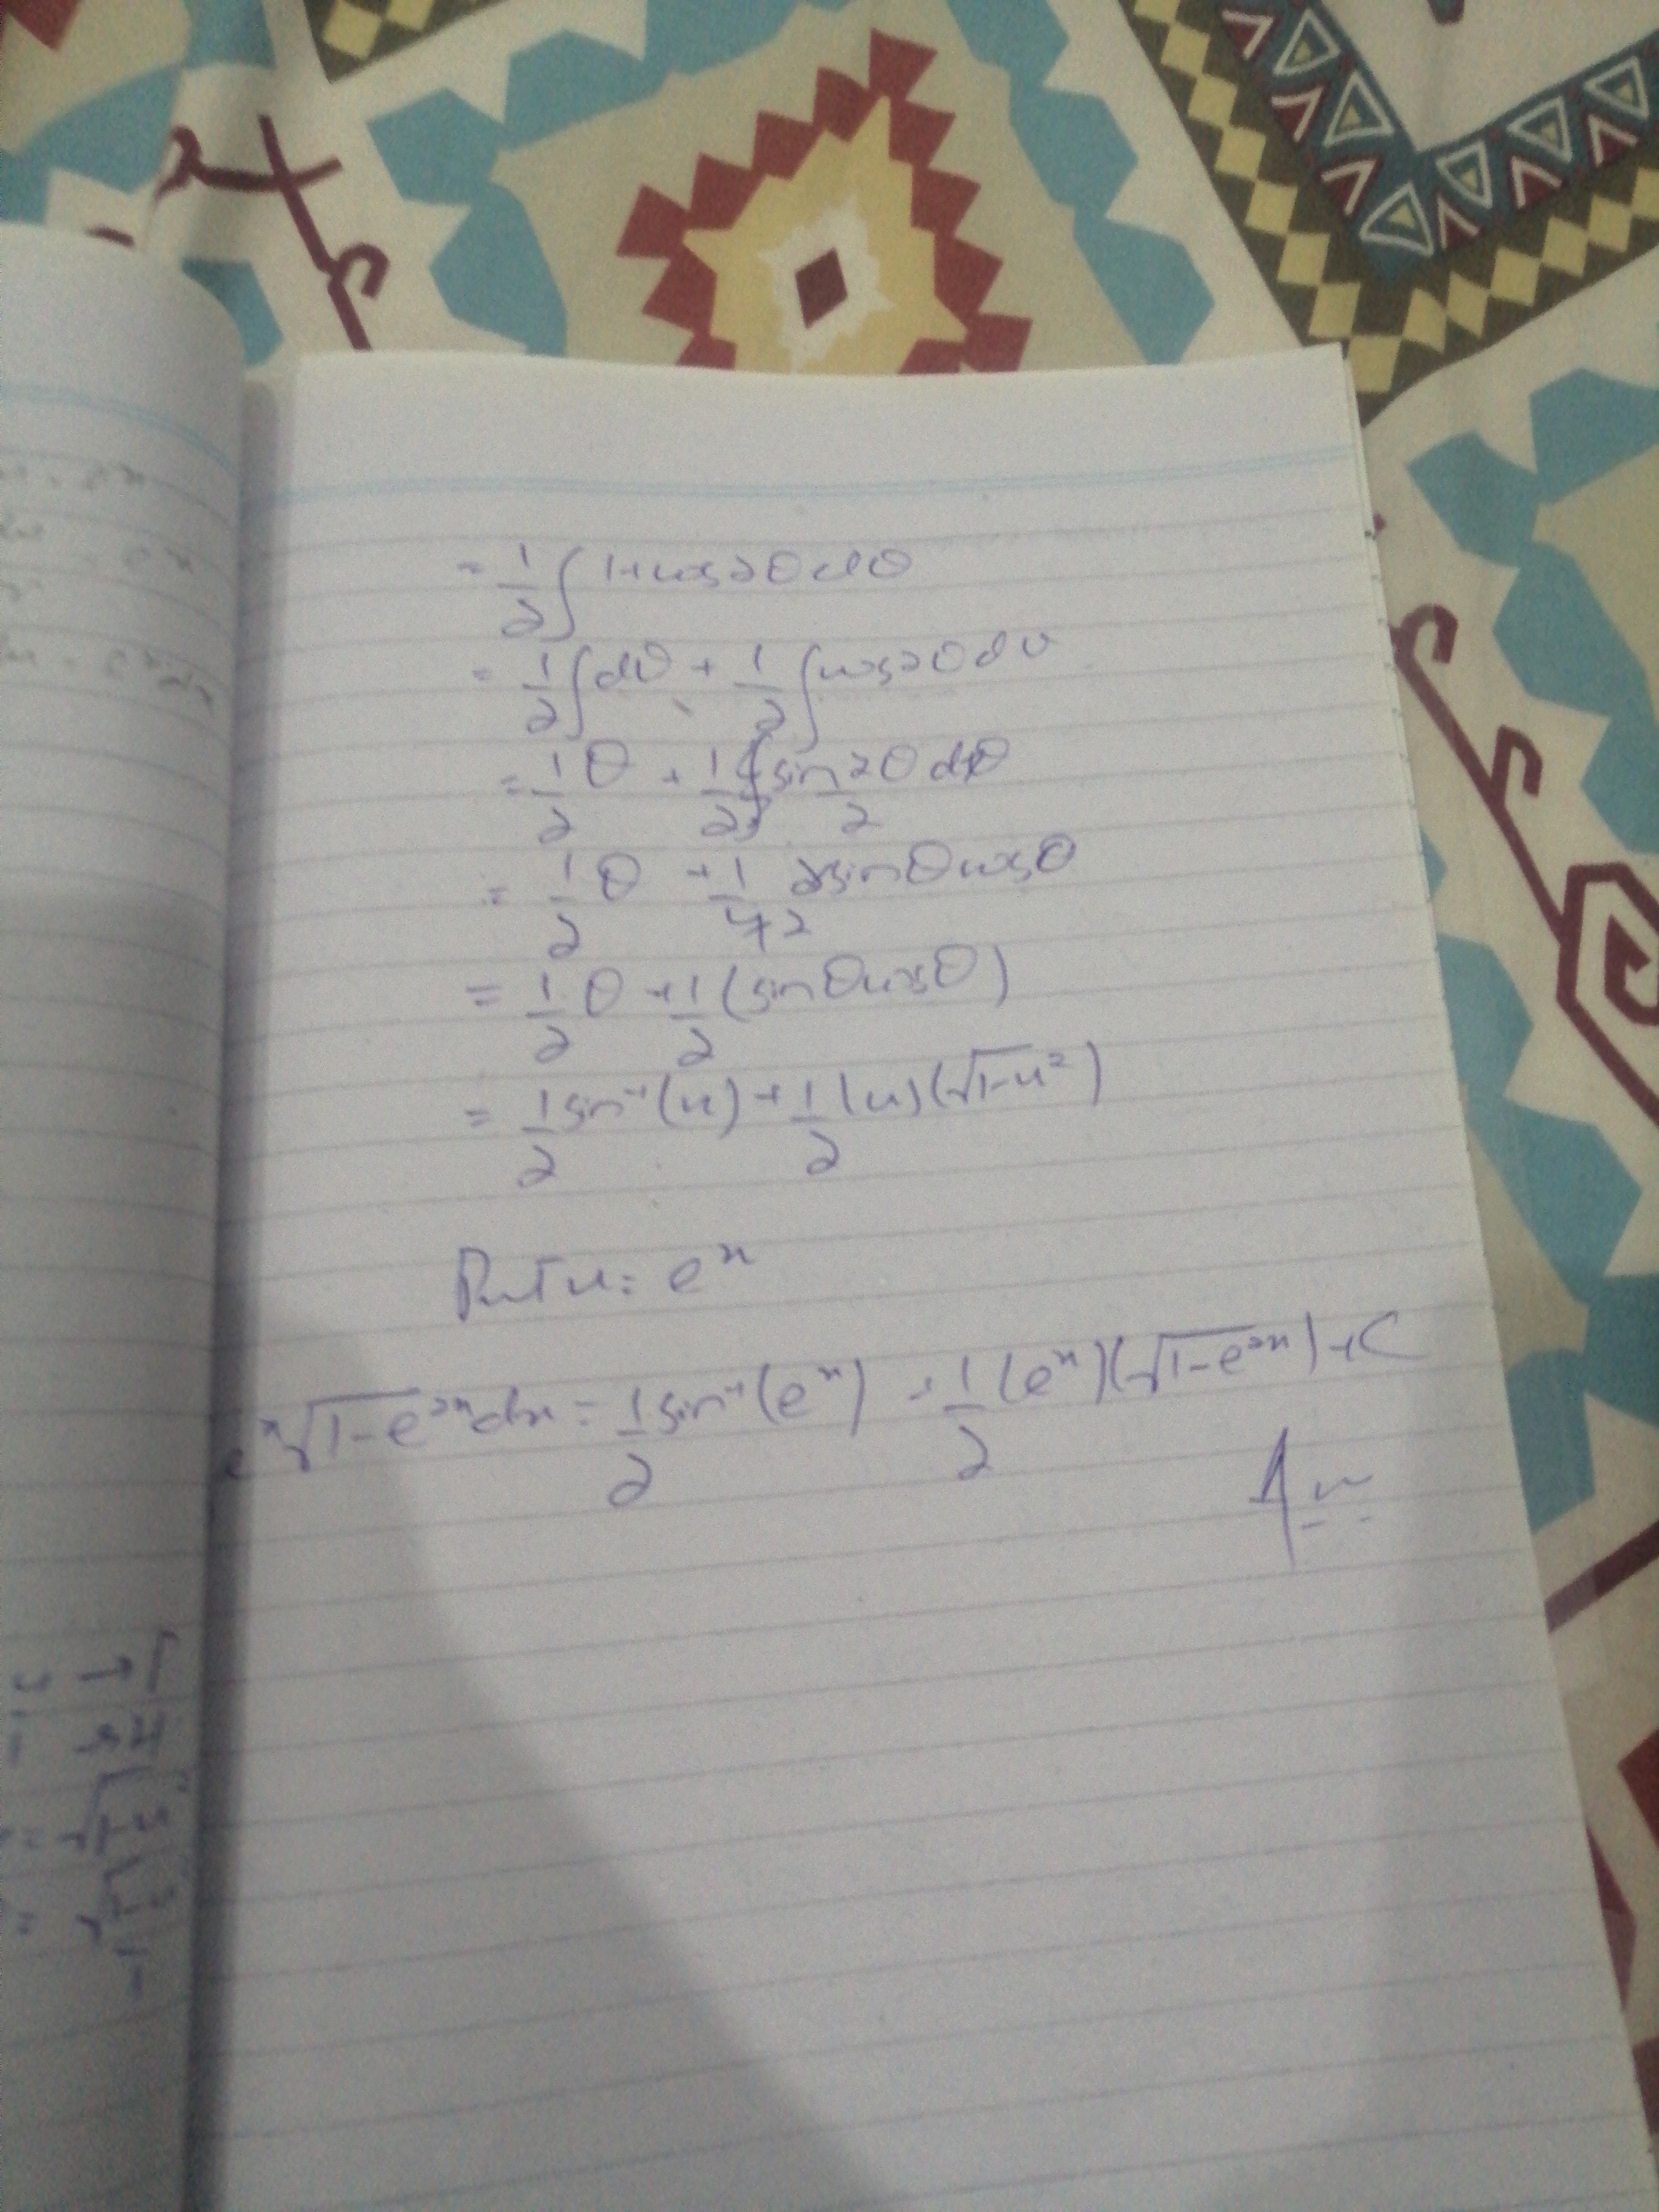 = 1/2 ∫ 1+cos2θdθ
= 1/2 ∫dθ + 1/2 ∫cos2θdθ
= 1/2 θ + 1/2 sin2θ/2
= 1/2 θ + 1/4 2sinθcosθ
= 1/2 θ + 1/2 (sinθcosθ)
= 1/2 sin⁻¹(u) + 1/2 (u)(√1-u²)
Put u = eˣ
eˣ√1-e²ˣ dx = 1/2 sin⁻¹(eˣ) + 1/2 (eˣ)(√1-e²ˣ)+C